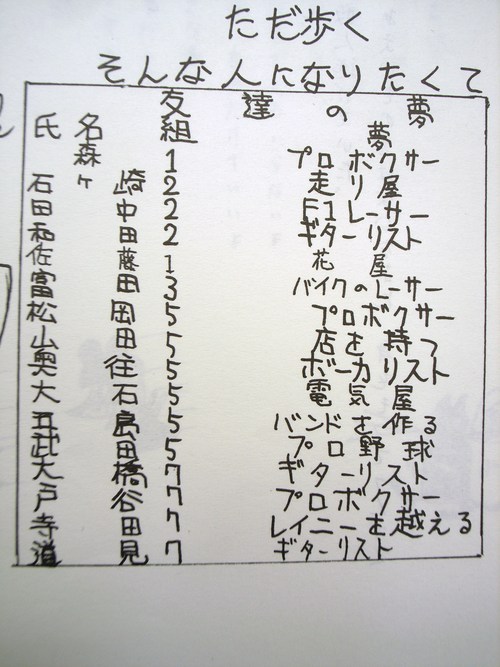 ただ歩く
そんな人になりたくて
友達の夢
氏名 組 夢
森 1 プロボクサー
石ヶ崎 2 走り屋
田中 2 F1レーサー
和田 2 ギターリスト
佐藤 1 花屋
富田 3 バイクのレーサー
松岡 5 プロボクサー
山田 5 店を持つ
奥往 5 ボーカリスト
大石 5 電気屋
五島 5 バンドを作る
武田 5 プロ野球
大橋 7 ギターリスト
戸谷 7 プロボクサー
寺田 7 レイニーを越える
道見 7 ギターリスト